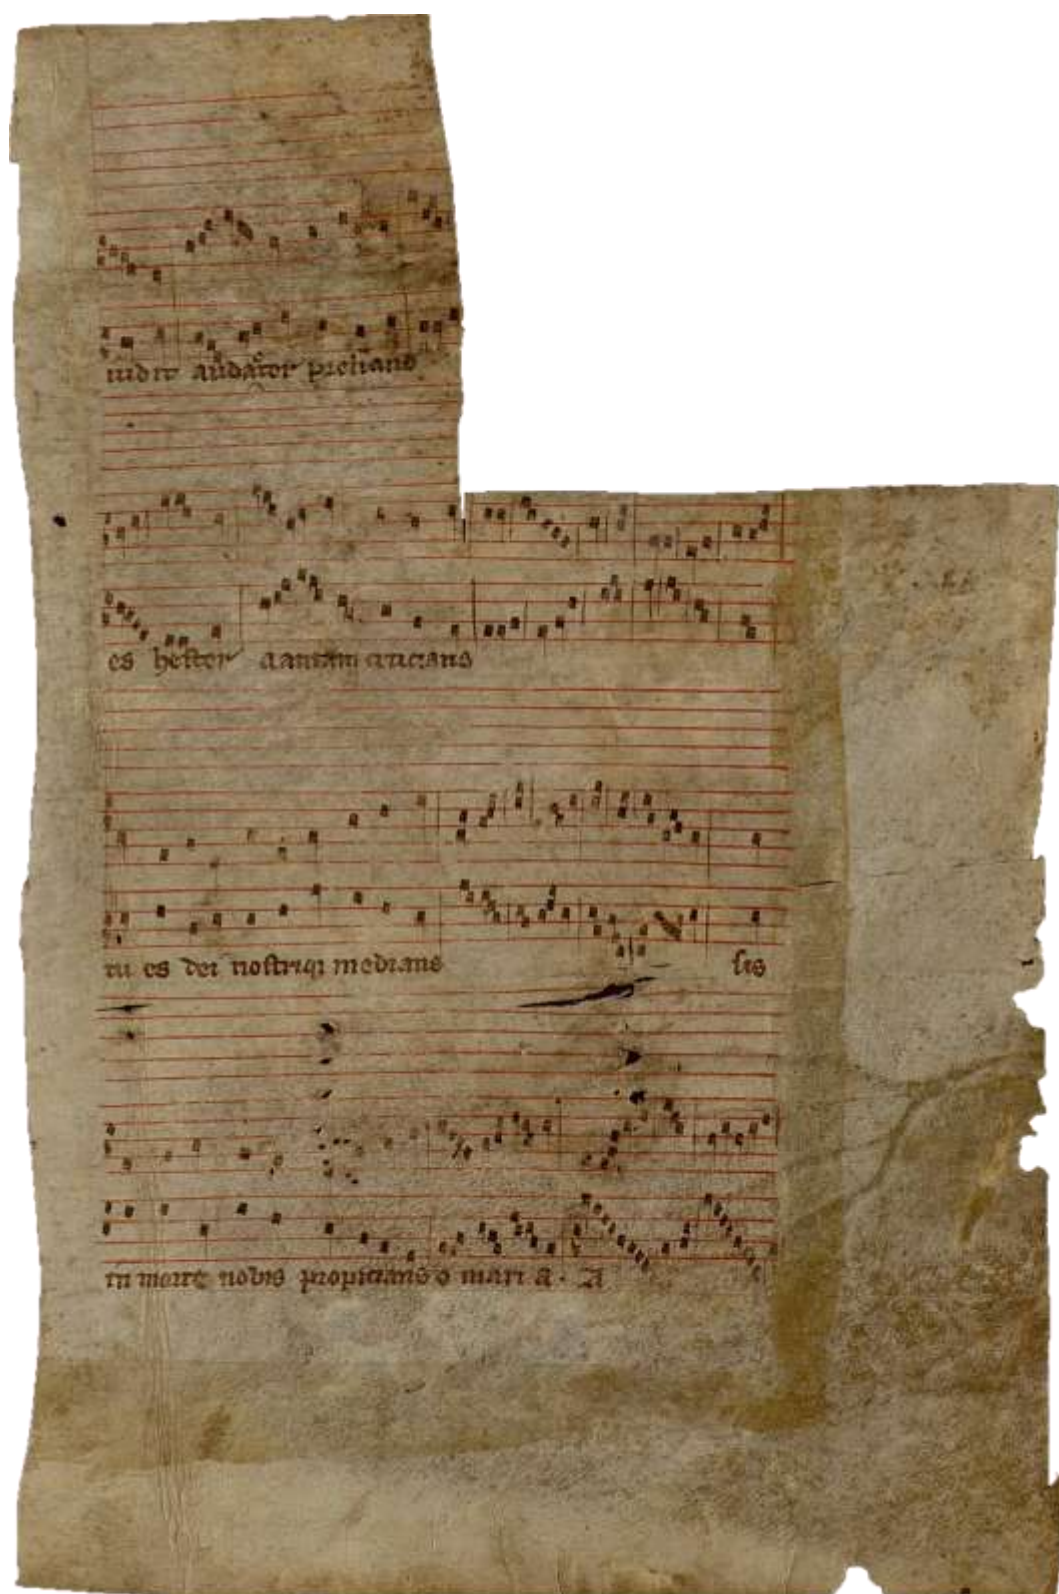 iudit audator prelians
es hester clamam citians
tu es dei nostriqi medians sis
in morte nobis propicians o mari a . A